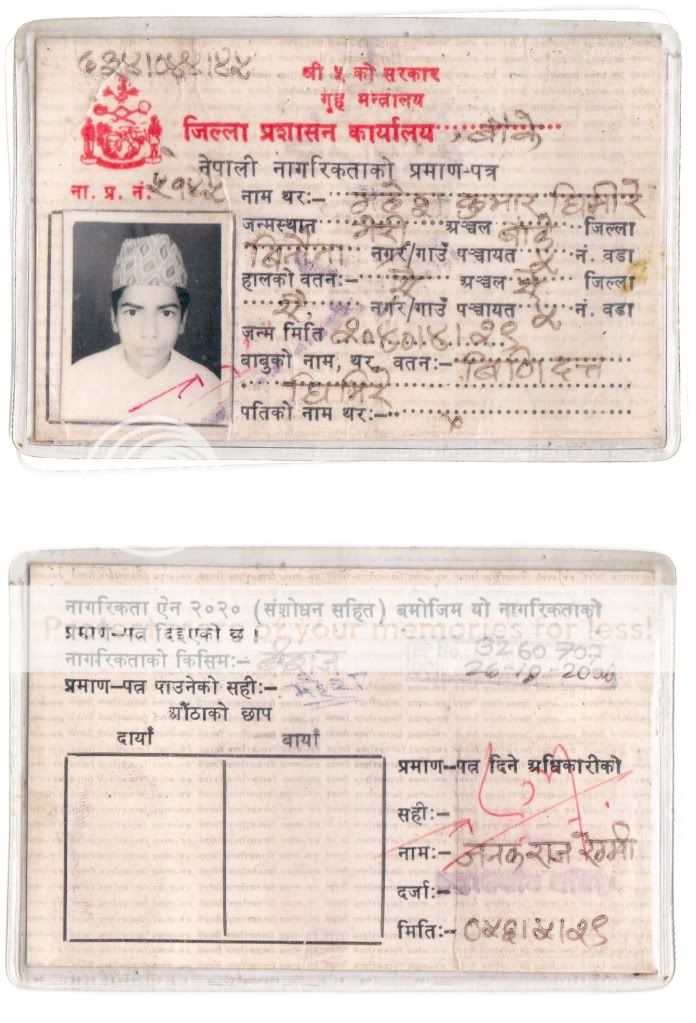 श्री ५ को सरकार
गृह मन्त्रालय
जिल्ला प्रशासन कार्यालय बाँके
नेपाली नागरिकताको प्रमाण-पत्र
ना. प्र. नं.
नाम थर:- कुमार घिमिरे
जन्मस्थान भेरी अञ्चल बाँके जिल्ला
नगर/गाउँ पञ्चायत ५ नं. वडा
हालको वतन:- ऐ अञ्चल ऐ जिल्ला
ऐ नगर/गाउँ पञ्चायत ५ नं. वडा
जन्म मिति २०४०।४।२९
बाबुको नाम, थर, वतन:- दत्त
घिमिरे
पतिको नाम थर:-
नागरिकता ऐन २०२० (संशोधन सहित) बमोजिम यो नागरिकताको
Protect more of your memories for less!
प्रमाण-पत्र दिइएको छ ।
नागरिकताको किसिम:- वंशज
3260707
प्रमाण-पत्र पाउनेको सही:-
औंठाको छाप
दायाँ बायाँ
प्रमाण-पत्र दिने अधिकारीको
सही:-
नाम:- जनक राज रेग्मी
दर्जा:-
मिति:- ०५६।५।२९